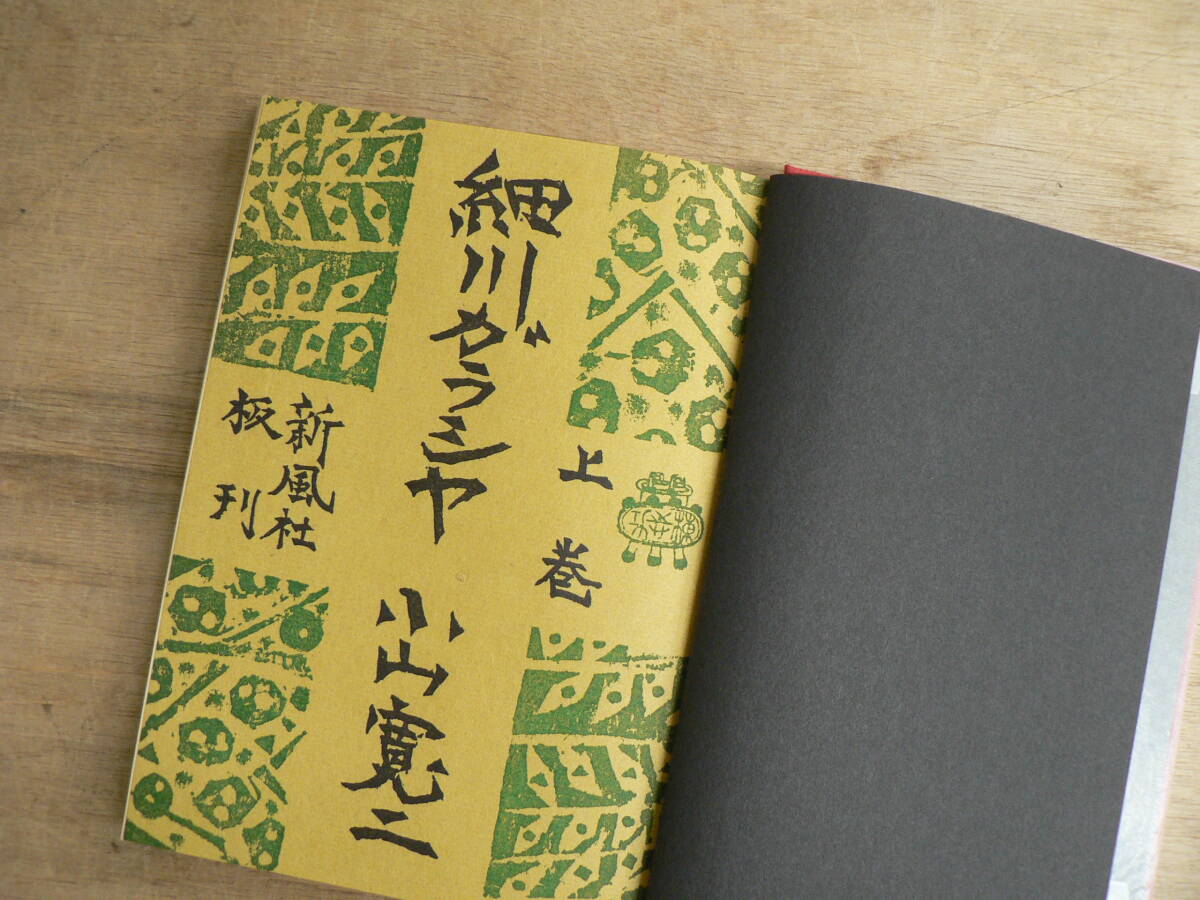 上巻
細川ガラシヤ
小山寛二
新風社
板刊